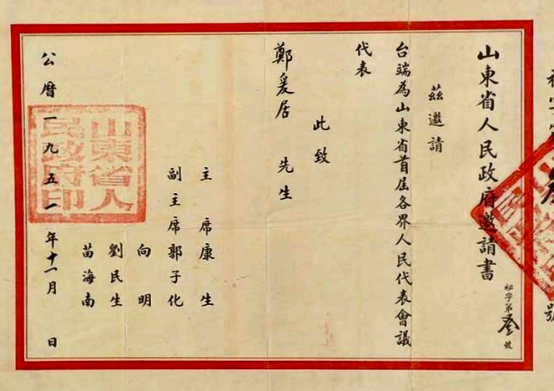 山東省人民政府邀請書
秘字第叁號
茲邀請
台端為山東省首屆各界人民代表會議
代表
此致
鄭爰居 先生
主席康生
副主席郭子化
向明
劉民生
苗海南
公曆一九五一年十一月 日
山東省人民政府印
號